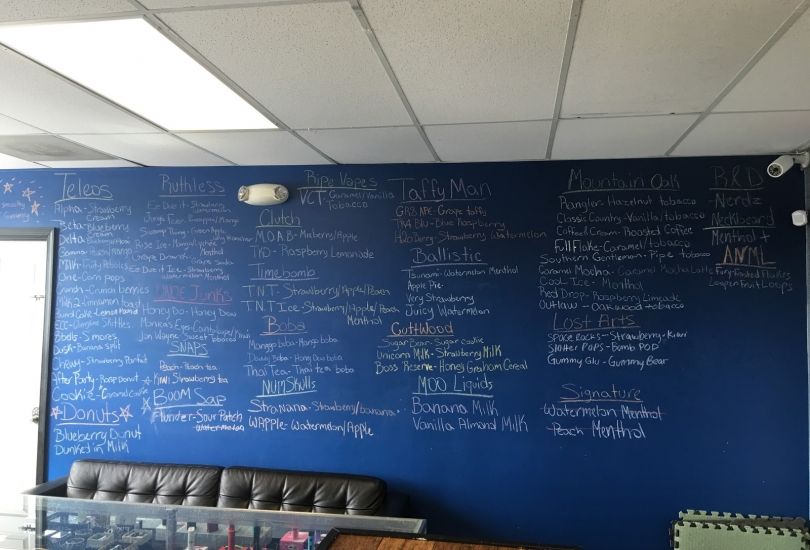 Teleos
Alpha - Strawberry
Cream
Beta - Blueberry
Cream
Delta
Milk - Fruity Pebbles
One - Corn pops
Crunch - Cinnamon berries
Milk 2 - Cinnamon toast
Bundt Cake - Lemon
Dusk - Banana split
Chewy - Strawberry Parfait
After Party - Rasp Donut
Cookie - Caramel cookie
Donuts
Blueberry Donut
Dunked in Milk
Ruthless
Ez Duz it - Strawberry
Watermelon
Jungle Fever
Swamp Thang - Green Apple
Rise Ice - Mango/Lychee
Menthol
Grape Drank - Grape Soda
Ez Duz it Ice - Strawberry
Watermelon
Menthol
Juice Junks
Honey Do - Honey Dew
Jon Wayne Sweet Tobacco
SNAPS
Peach - Peach tea
Kiwi Strawberry tea
BOOM Sap
Plunder - Sour Patch
Watermelon
Ripe Vapes
VCT - Caramel/Vanilla
Tobacco
Clutch
M.O.A.B - Mixberry/Apple
TKO - Raspberry Lemonade
Timebomb
T.N.T - Strawberry/Apple/Peach
T.N.T Ice - Strawberry/Apple/Peach
Menthol
Boba
Mango boba - Mango boba
Dewy Boba - Honey Dew boba
Thai Tea - Thai tea boba
NUMSkulls
Stranana - Strawberry/banana
WAPple - Watermelon/Apple
Taffy Man
GR8 APE - Grape taffy
TRA Blu - Blue Raspberry
H2O Derry - Strawberry Watermelon
Ballistic
Tsunami - Watermelon Menthol
Apple Pie -
Very Strawberry
Juicy Watermelon
GuttWood
Sugar Bear - Sugar cookie
Unicorn Milk - Strawberry Milk
Boss Reserve - Honey Graham Cereal
MOO Liquids
Banana Milk
Vanilla Almond Milk
Mountain Oak
Ranglers Hazelnut tobacco
Classic Country - Vanilla/tobacco
Coffee & Cream - Roasted Coffee
Full Flake - Caramel/tobacco
Southern Gentleman - Pipe tobacco
Caramel Mocha - Caramel Mocha Latte
Cool-Ice - Menthol
Red Drop - Raspberry Limeade
Outlaw - Oakwood tobacco
Lost Arts
SPACE Rocks - Strawberry - Kiwi
SKOTER POPS - Bomb POD
Gummy Glu - Gummy Bear
Signature
-Watermelon Menthol
-Peach Menthol
R&D
-Nerdz
Neckbeard
Menthol +
ANML
Fury - Frosted Flakes
Looper - Fruit Loops